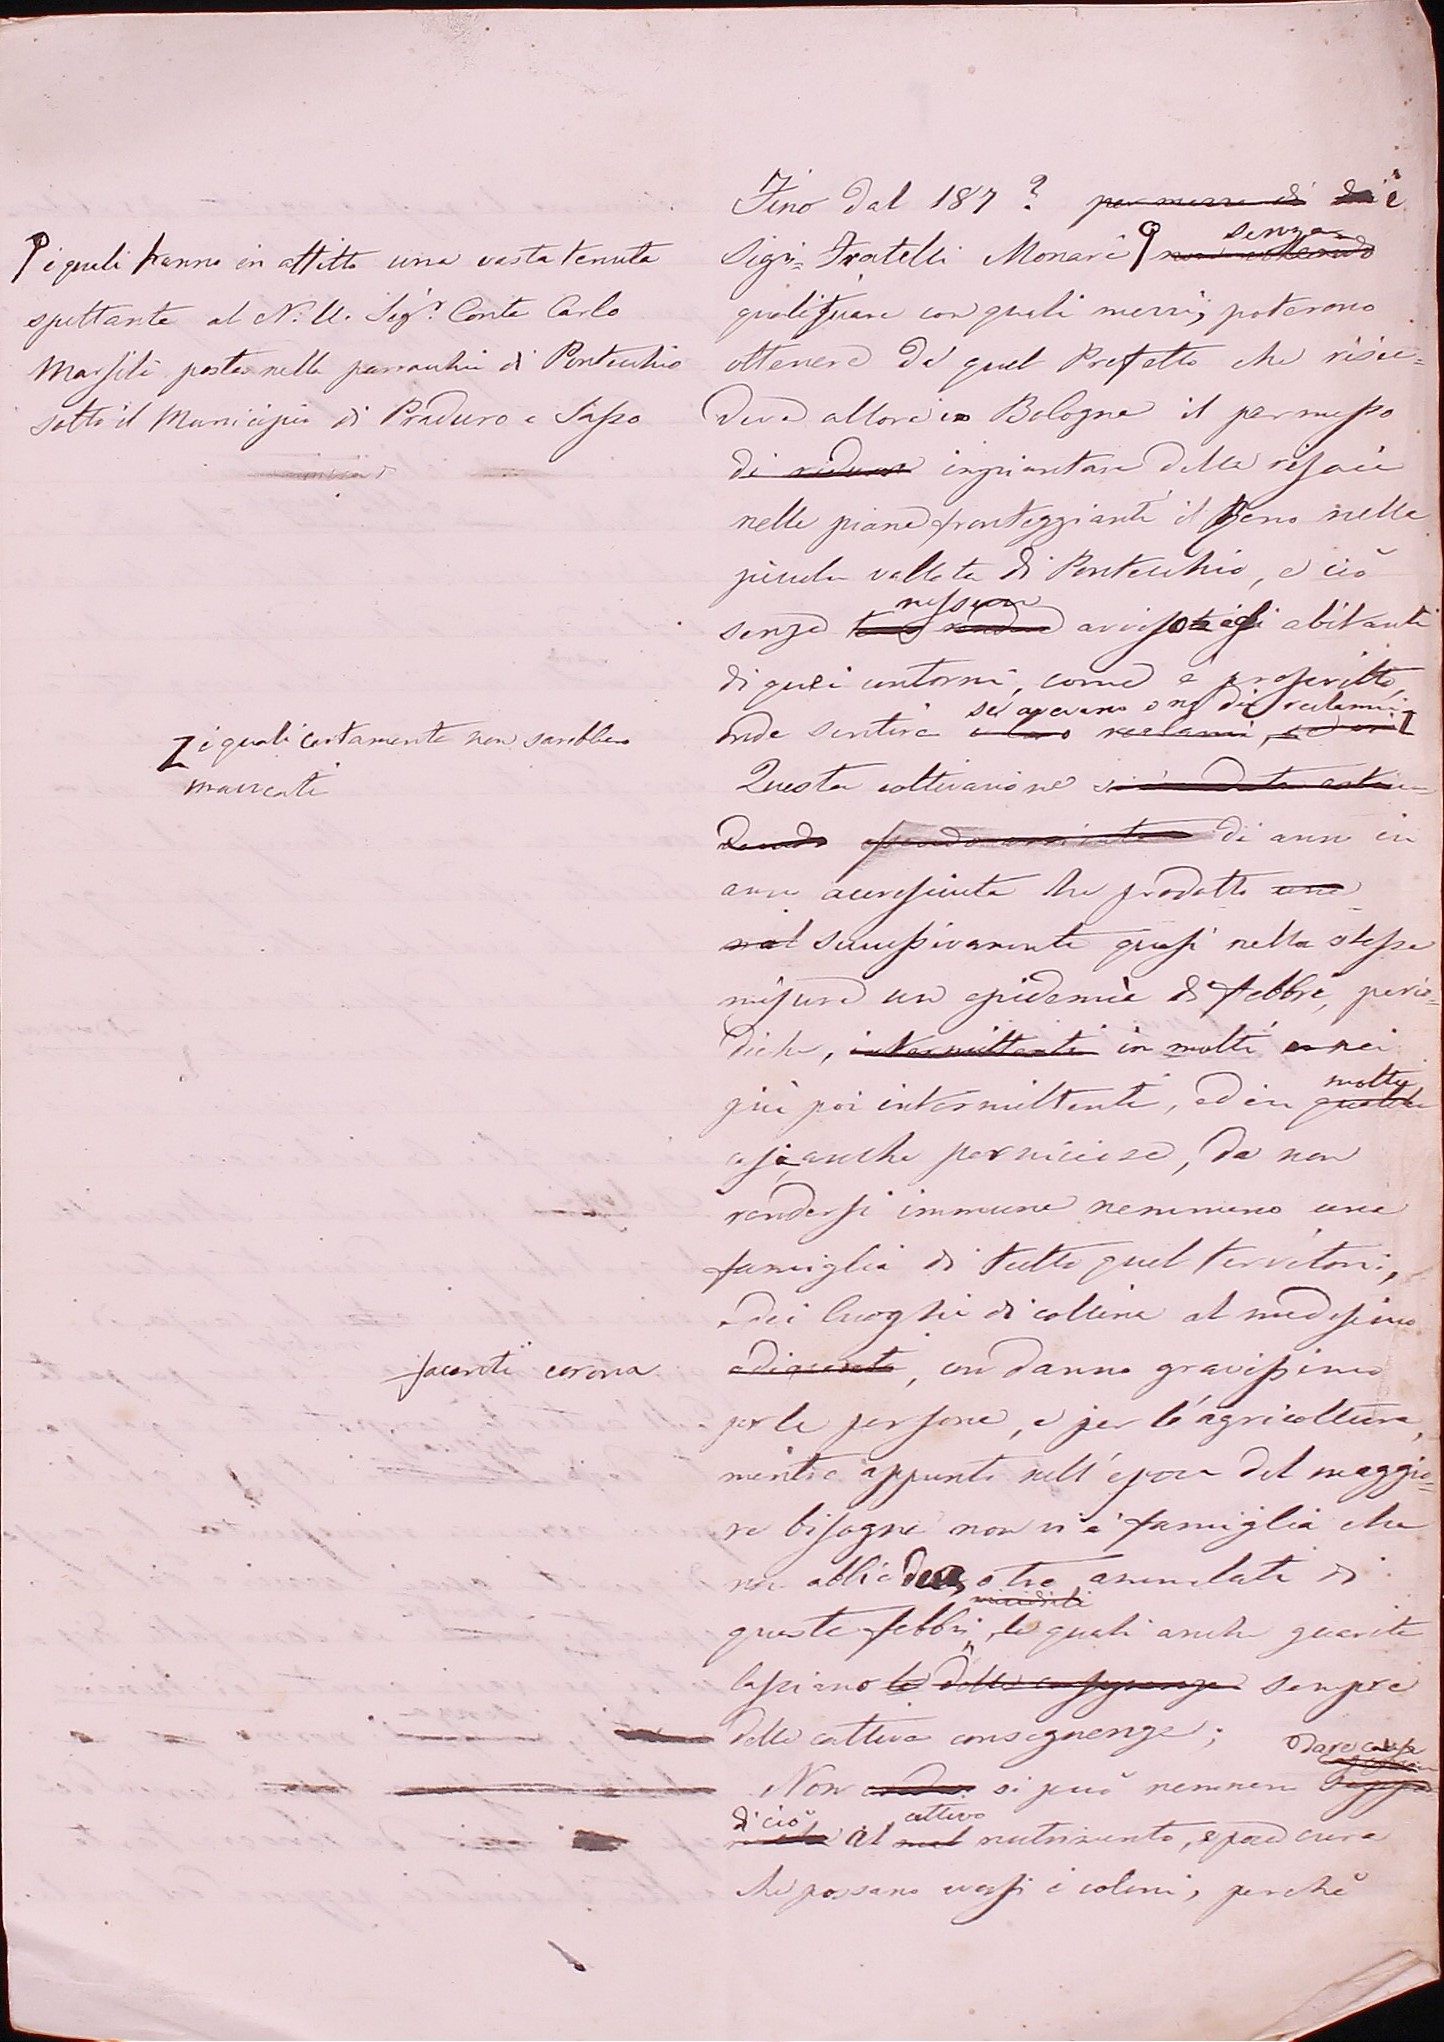 Fino dal 187? per mezzo di i
Sigri Fratelli Monari senza
i quali hanno in affitto una vasta tenuta
spettante al N. U. Sigr. Conte Carlo
Marsili posta nella parrochia di Pontecchio
sotto il Municipio di Praduro e Sasso
qualificare con quali mezzi, poterono
ottenere da quel Prefetto che risie=
deva allora in Bologna il permesso
di impiantare delle risaie
nelle piane fronteggianti il Reno nella
picola vallata di Pontecchio, e ciò
nessun
senza avviso agli abitanti
di quei contorni, come è prescritto,
se avevano o no dei reclami
onde sentire reclami,
i quali certamente non sarebbero
mancati
Questa coltivazione
di anno in
anno accresciuta ha prodotto una
mal successivamente quasi nella stessa
misura un epidemia di febbri, perio=
diche, intermittenti in molti nei
più poi intermittenti, ed in molte
anche perniciose, da non
rendersi immune nemmeno una
famiglia di tutto quel territori,
e dei luoghi di collina al medesimo
facenti corona
adiacenti, con danno gravissimo
per le persone, e per l'agricoltura,
mentre appunto nell'epoca del maggio=
re bisogno non vi è famiglia che
non abbia due, o tre ammalati di
micidiali
queste febbri, le quali anche guarite
lasciano le delle conseguenze sempre
delle cattive conseguenze;
dare colpa
Non si può nemmeno
di ciò cattivo
al mal nutrimento, e poca cura
che possano aversi i coloni, perchè